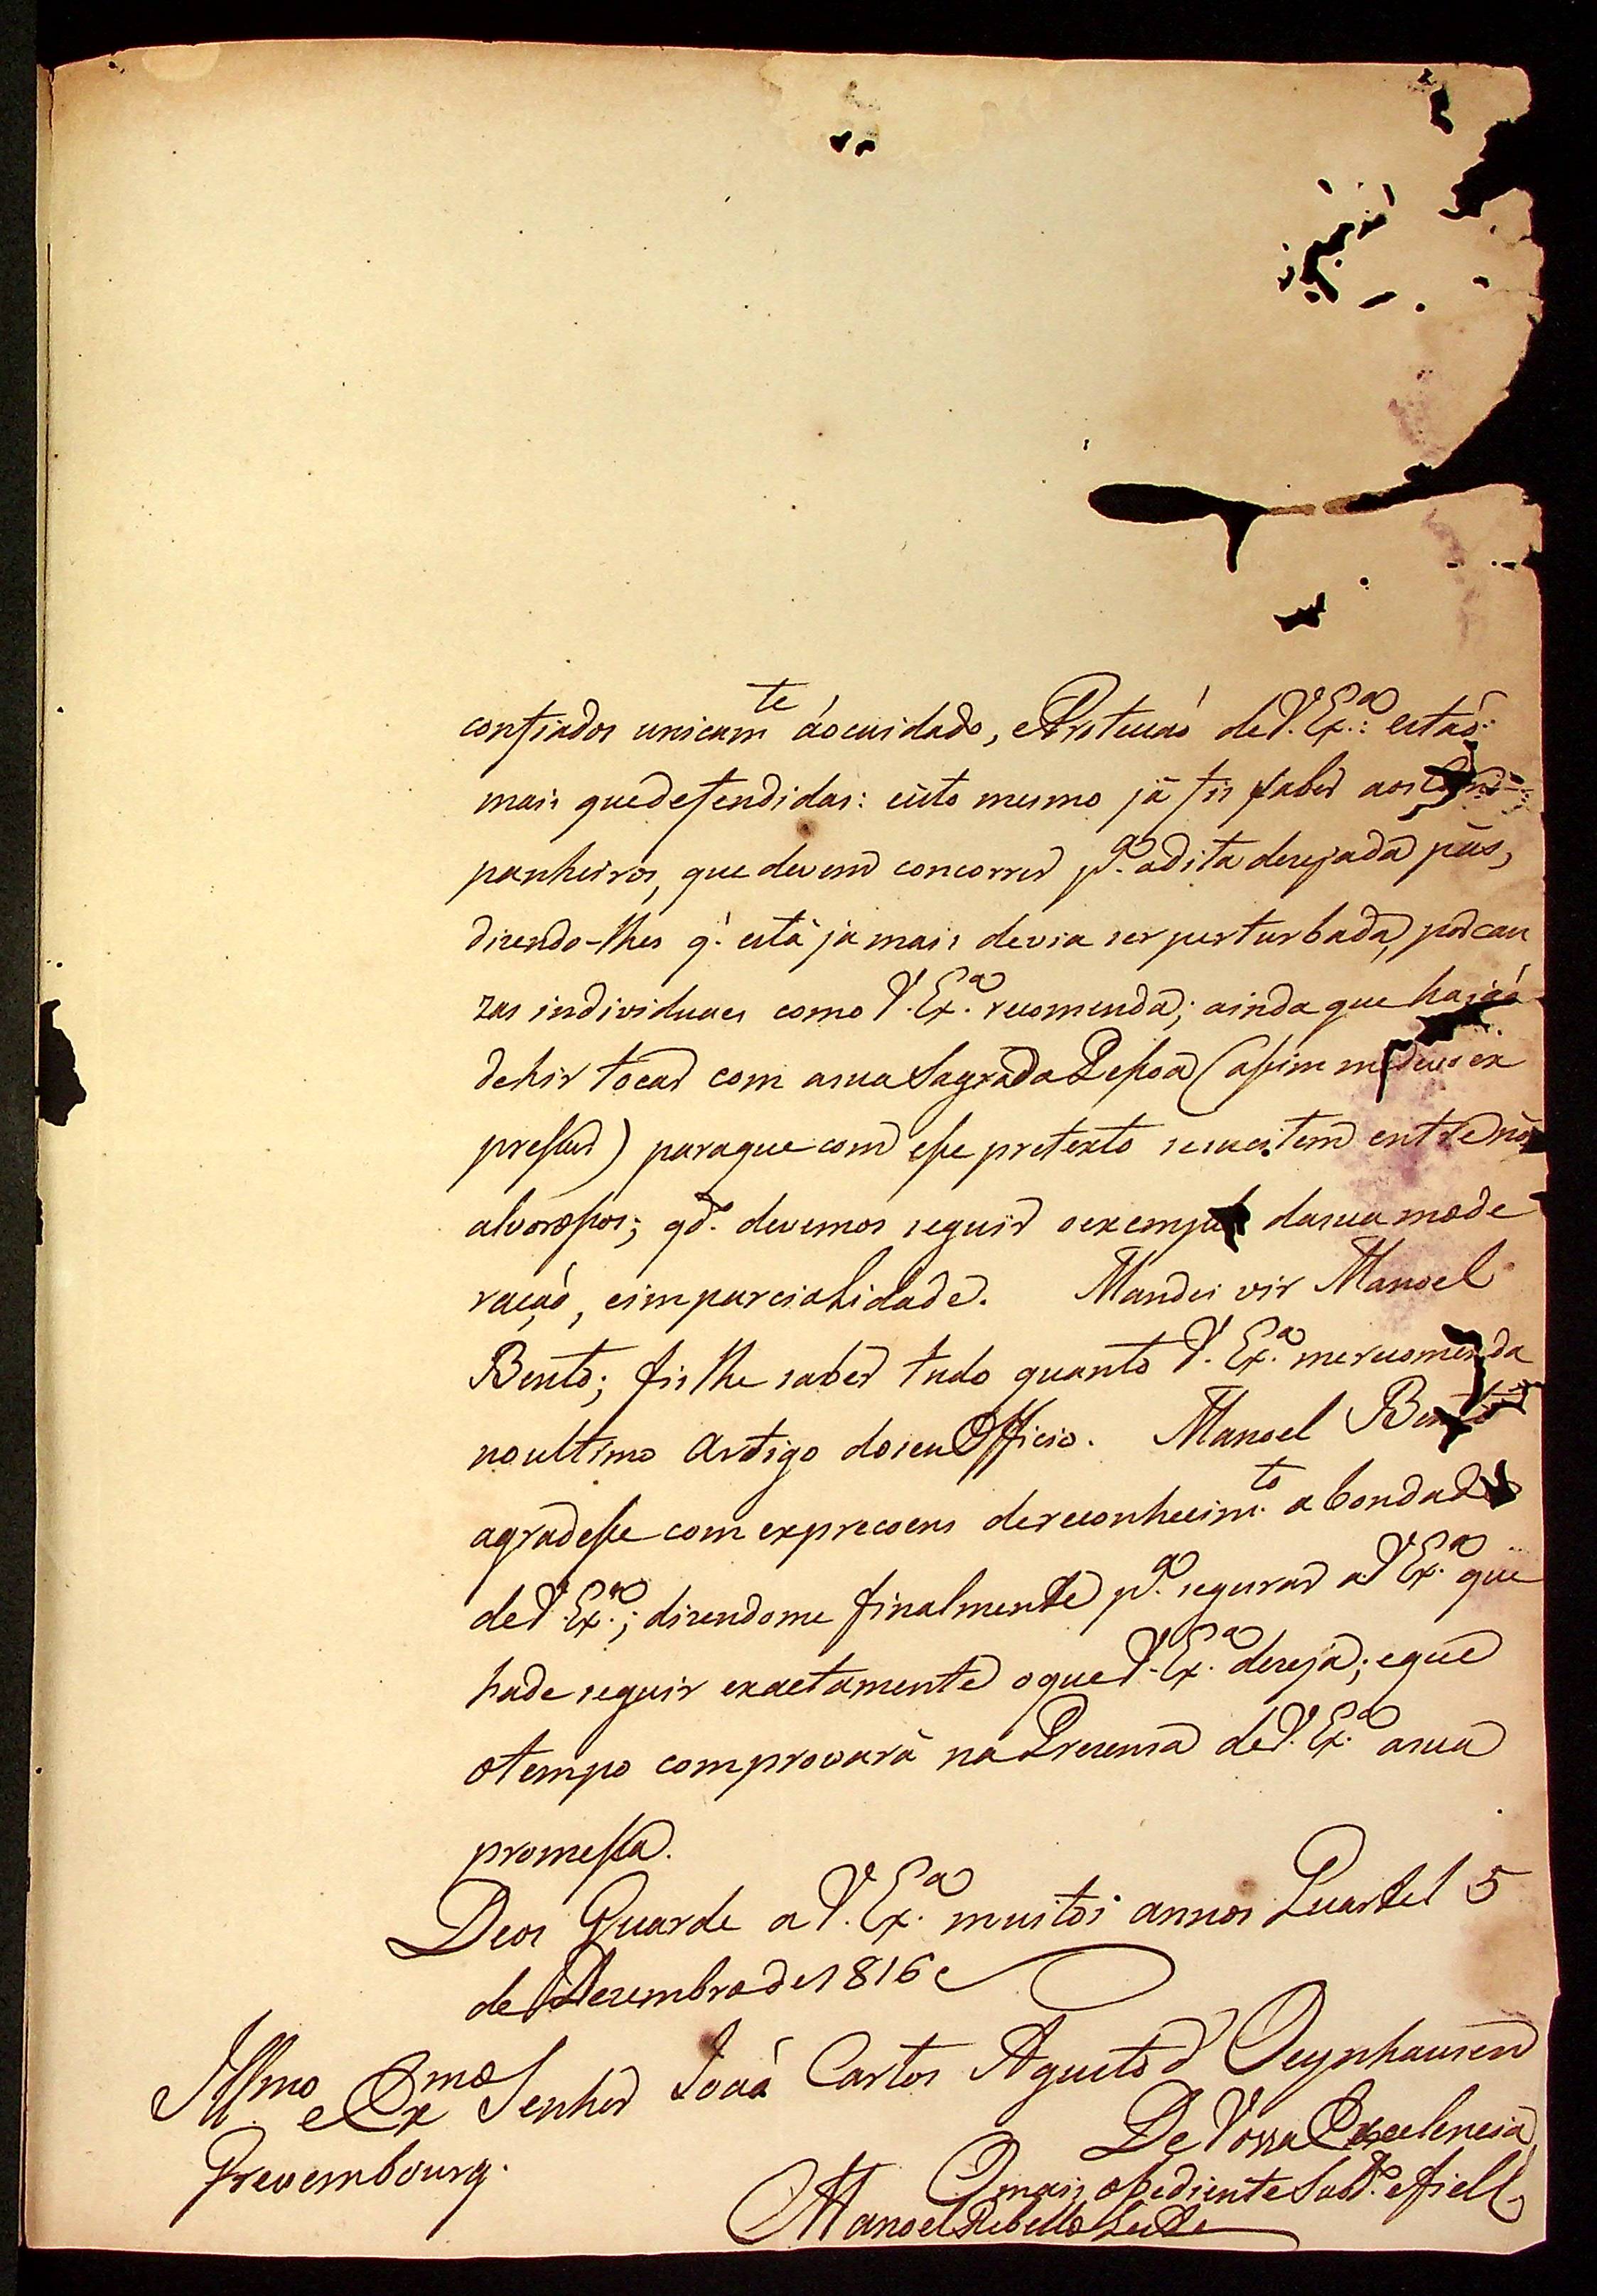 confiados unicamte áocuidado, eProtecáo deV. Exa: estaó
mais quedefendidas: eisto mesmo já fis saber aos Com
panheiros, que devem concorrer pa. adita dezejada pás,
dizendo-lhes q. está jamais devia ser perturbada, porcau
zas individuaes como V. Exa. recomenda; ainda que hajáo
dehir tocar com asua Sagrada Pessoa (assim me devo ex
pressar) paraque com esse pretexto sesucitem entre nós
alvorossos; qdo. devemos seguir oexemplo dasua mode
raçaó, eimparcialidade. Mandei vir Manoel
Bento; fis lhe saber tudo quanto V. Exa. merecomenda
noultimo Artigo doseu Officio. Manoel Bento
agradesse com exprecoens dereconhecimto. abondade
deV. Exa.; dizendome finalmente pa. segurar aV Exa. que
hade seguir exactamente oque V. Exa. dezeja; eque
otempo comprovará na Prezensa deV. Exa. asua
promessa.
Deos Guarde a V. Exa. muitos annos Quartel 5
de Dezembro de 1816
Illmo e Exmo Senhor Joaó Carlos Agusto d' Oeynhausen
Grevembourg.
De Vossa Excelencia
O mais obediente Subdo. efiell
Manoel Rebello Leite